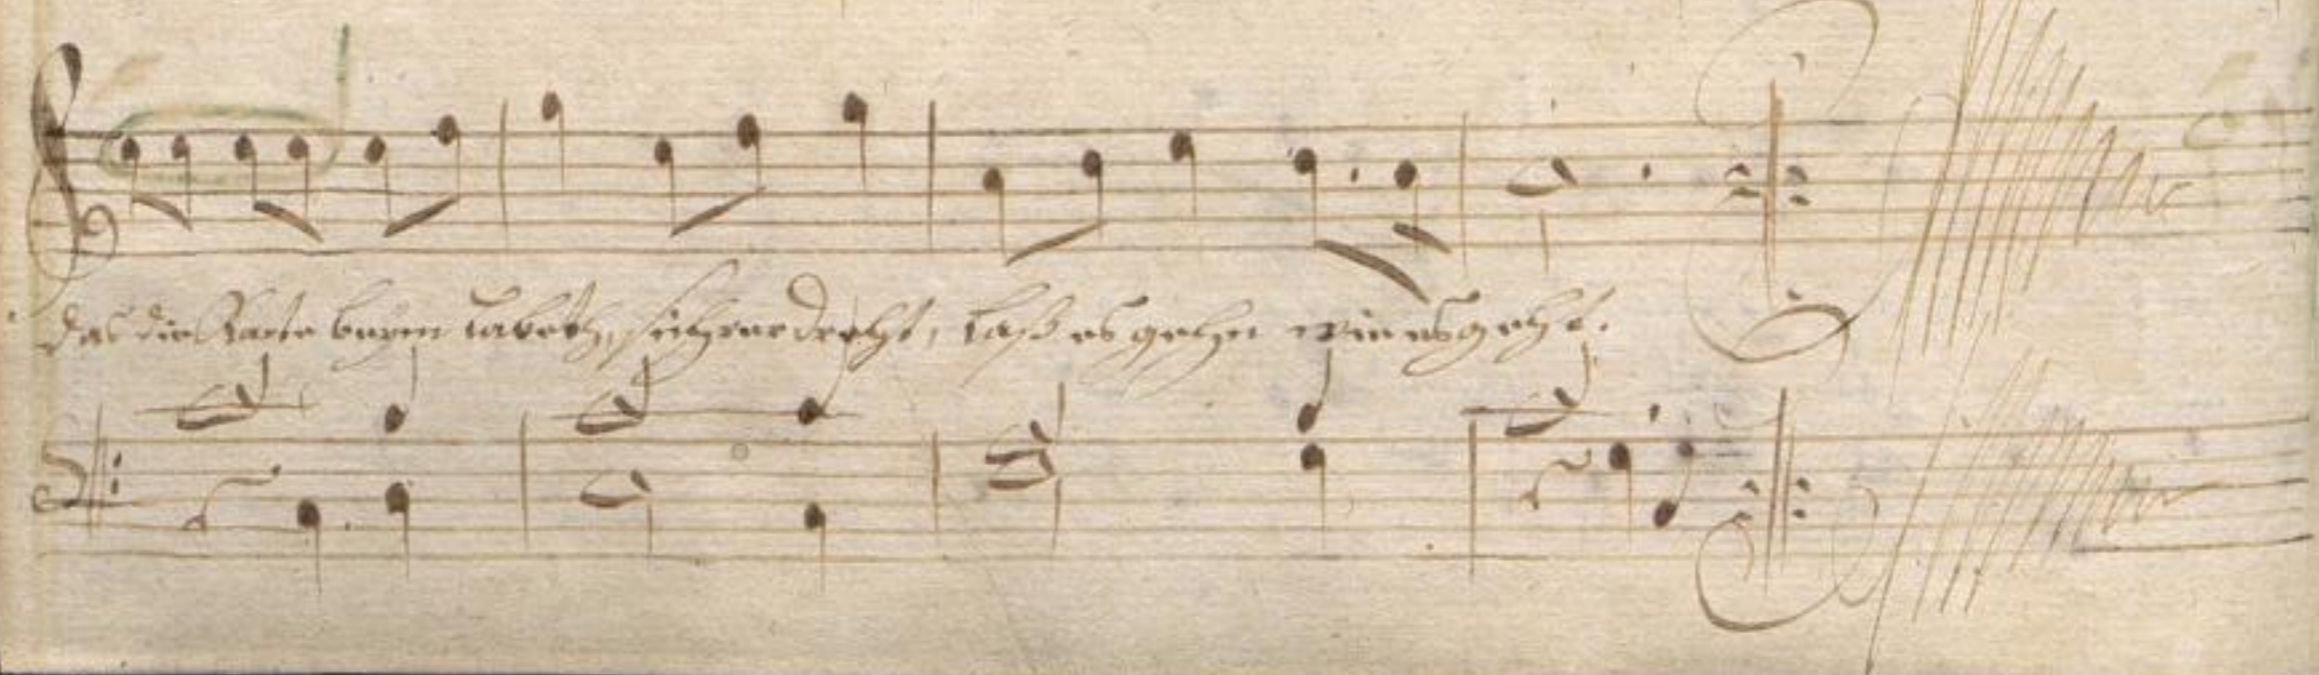 das die Karte beym labeth, sich verdreht, laß es gehn wie es geht.